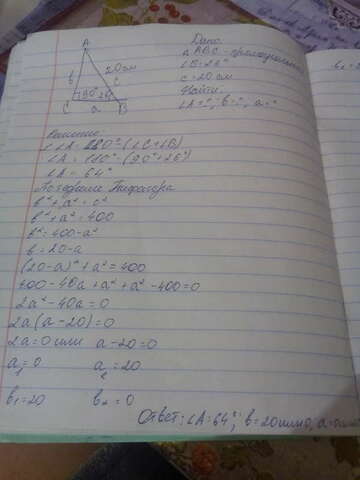 Дано:
△ ABC - прямоугольный
∠B=26°
c=20 см
Найти:
∠A=?, b=?, a=?
A
20 см
b
c
C
90°
26°
a
B
Решение:
∠A=180°-(∠C+∠B)
∠A=180°-(90°+26°)
∠A=64°
По теореме Пифагора
b²+a²=c²
b²+a²=400
b²=400-a²
b=20-a
(20-a)²+a²=400
400-40a+a²+a²-400=0
2a²-40a=0
2a(a-20)=0
2a=0 или a-20=0
a₁=0 a₂=20
b₁=20 b₂=0
Ответ: ∠A=64°; b=20 или 0, a=0 или